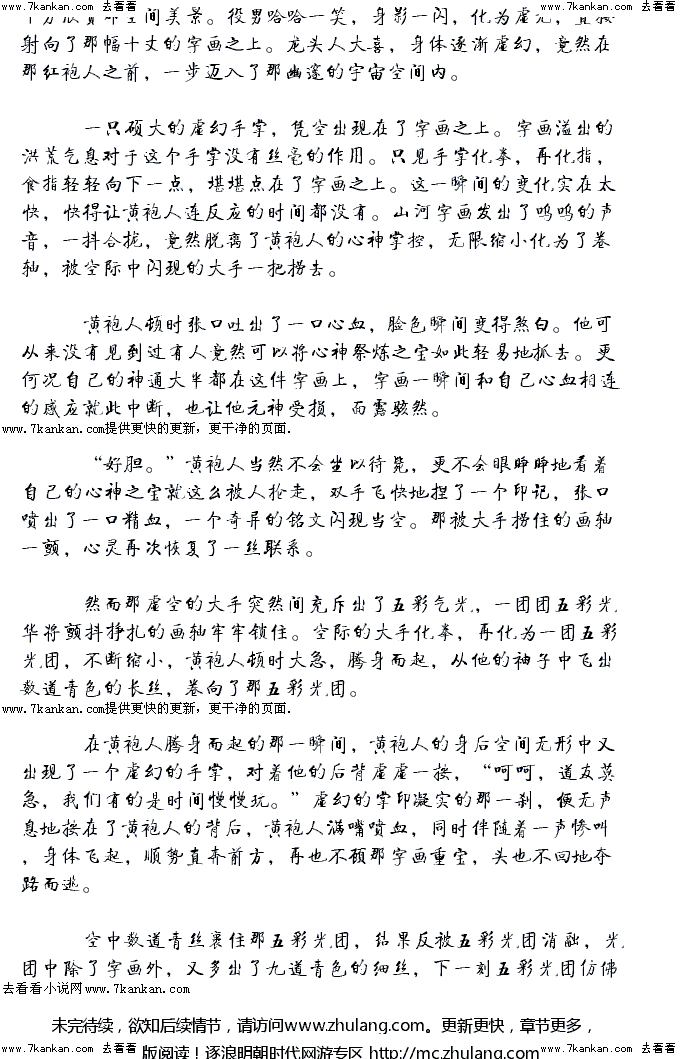 www.7kankan.com 去看看 www.7kankan.com 去看看 www.7kankan.com 去看看
射向了那幅十丈的字画之上。龙头人大喜，身体逐渐虚幻，竟然在
那红袍人之前，一步迈入了那幽邃的宇宙空间内。
一只硕大的虚幻手掌，凭空出现在了字画之上。字画溢出的
洪荒气息对于这个手掌没有丝毫的作用。只见手掌化拳，再化指，
食指轻轻向下一点，堪堪点在了字画之上。这一瞬间的变化实在太
快，快得让黄袍人连反应的时间都没有。山河字画发出了呜呜的声
音，一抖合拢，竟然脱离了黄袍人的心神掌控，无限缩小化为了卷
轴，被空际中闪现的大手一把捞去。
黄袍人顿时张口吐出了一口心血，脸色瞬间变得煞白。他可
从来没有见到过有人竟然可以将心神祭炼之宝如此轻易地抓去。更
何况自己的神通大半都在这件字画上，字画一瞬间和自己心血相连
的感应就此中断，也让他元神受损，面露骇然。
www.7kankan.com提供更快的更新，更干净的页面.
“好胆。”黄袍人当然不会坐以待毙，更不会眼睁睁地看着
自己的心神之宝就这么被人抢走，双手飞快地捏了一个印记，张口
喷出了一口精血，一个奇异的铭文闪现当空。那被大手捞住的画轴
一颤，心灵再次恢复了一丝联系。
然而那虚空的大手突然间充斥出了五彩气光，一团团五彩光
华将颤抖挣扎的画轴牢牢锁住。空际的大手化拳，再化为一团五彩
光团，不断缩小，黄袍人顿时大急，腾身而起，从他的袖子中飞出
数道青色的长丝，卷向了那五彩光团。
www.7kankan.com提供更快的更新，更干净的页面.
在黄袍人腾身而起的那一瞬间，黄袍人的身后空间无形中又
出现了一个虚幻的手掌，对着他的后背虚虚一按，“呵呵，道友莫
急，我们有的是时间慢慢玩。”虚幻的掌印凝实的那一刹，便无声
息地按在了黄袍人的背后，黄袍人满嘴喷血，同时伴随着一声惨叫
，身体飞起，顺势直奔前方，再也不顾那字画重宝，头也不回地夺
路而逃。
空中数道青丝裹住那五彩光团，结果反被五彩光团消融，光
团中除了字画外，又多出了九道青色的细丝，下一刻五彩光团仿佛
去看看小说网www.7kankan.com
未完待续，欲知后续情节，请访问www.zhulang.com。更新更快，章节更多，
版阅读！逐浪明朝时代网游专区 http://mc.zhulang.com
www.7kankan.com 去看看 www.7kankan.com 去看看